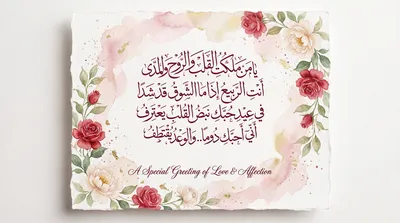 يَا مَنْ مَلَكْتَ القَلْبَ وَالرُّوحَ وَالمَدَى
أَنْتَ الرَّبِيعُ إِذَا مَا الشَّوْقُ قَدْ شَدَا
فِي عِيْدِ حُبِّكَ نَبْضُ القَلْبِ يَعْتَرِفُ
أَنِّي أُحِبُّكَ دَوْمًا.. وَالوَعْدُ يُقْتَطَفُ
A Special Greeting of Love & Affection